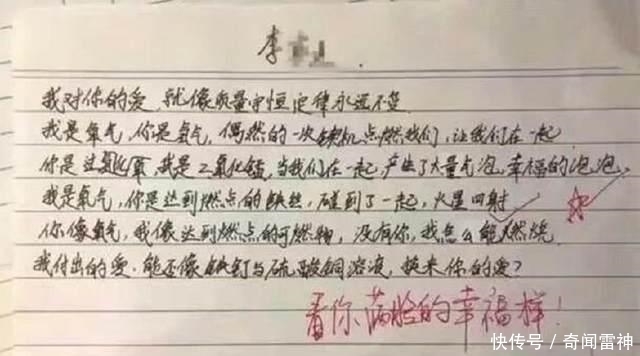 李
我对你的爱,就像质量守恒定律永远不变
我是氧气,你是氢气,偶然的一次契机点燃我们,让我们在一起
你是过氧化氢,我是二氧化锰,当我们在一起,产生了大量气泡,幸福的泡泡
我是氧气,你是达到燃点的铁丝,碰到了一起,火星四射
你像氧气,我像达到燃点的可燃物,没有你,我怎么能燃烧
我付出的爱,能否像铁钉与硫酸铜溶液,换来你的爱?
看你满脸的幸福样!
快传号/奇闻雷神